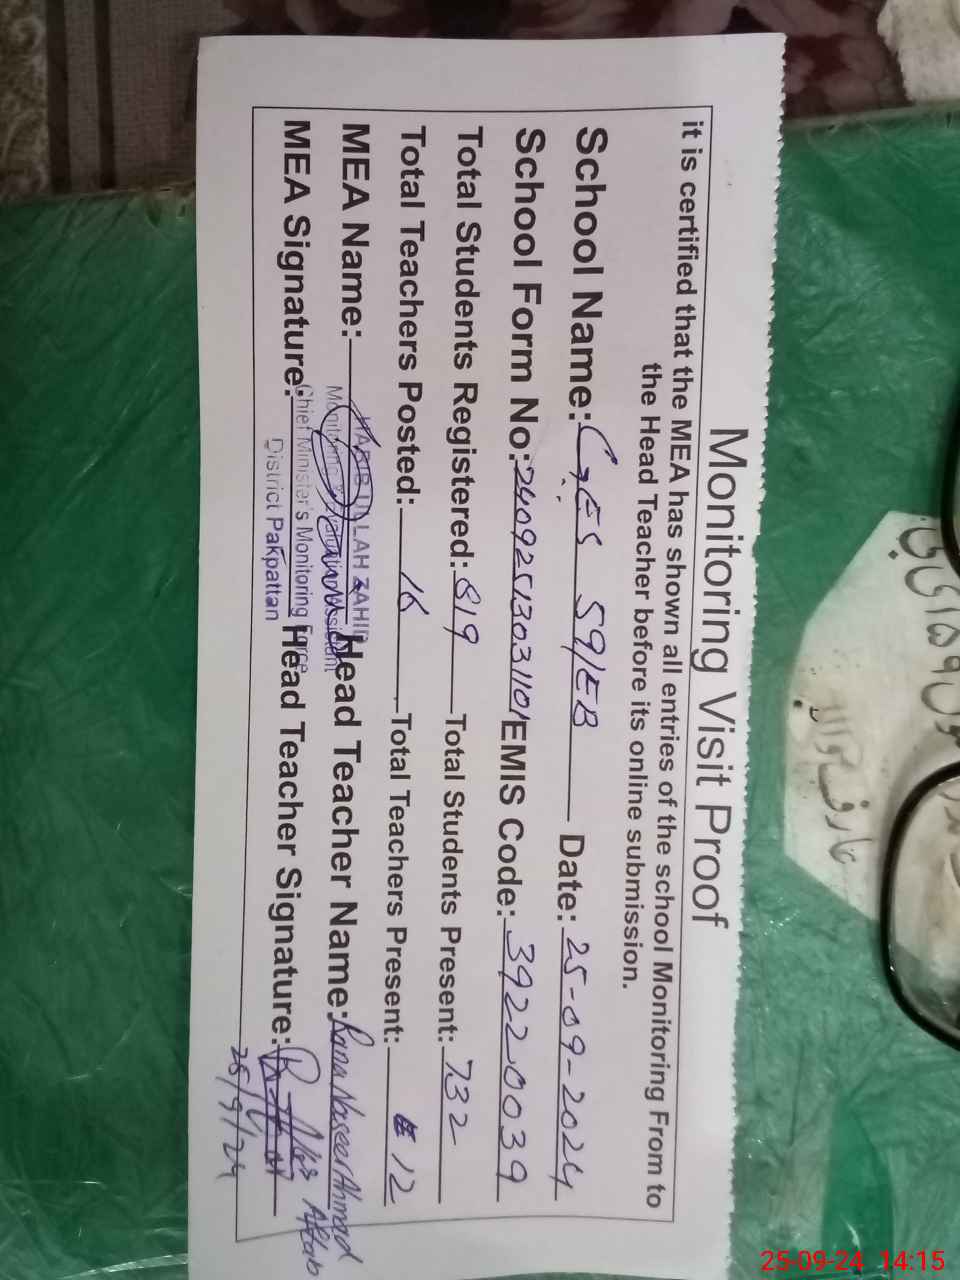 Monitoring Visit Proof
it is certified that the MEA has shown all entries of the school Monitoring From to
the Head Teacher before its online submission.
School Name: GES 59/EB Date: 25-09-2024
School Form No: 24092513031101 EMIS Code: 39220039
Total Students Registered: 819 Total Students Present: 732
Total Teachers Posted: 16 Total Teachers Present: 12
MEA Name: HABIB ULLAH ZAHID Head Teacher Name: Rana Naseer Ahmad
Aftab
Monitoring & Evaluation Assistant
MEA Signature: Head Teacher Signature:
Chief Minister's Monitoring Force
District Pakpattan
25/9/24
عارف والا
25-09-24 14:15